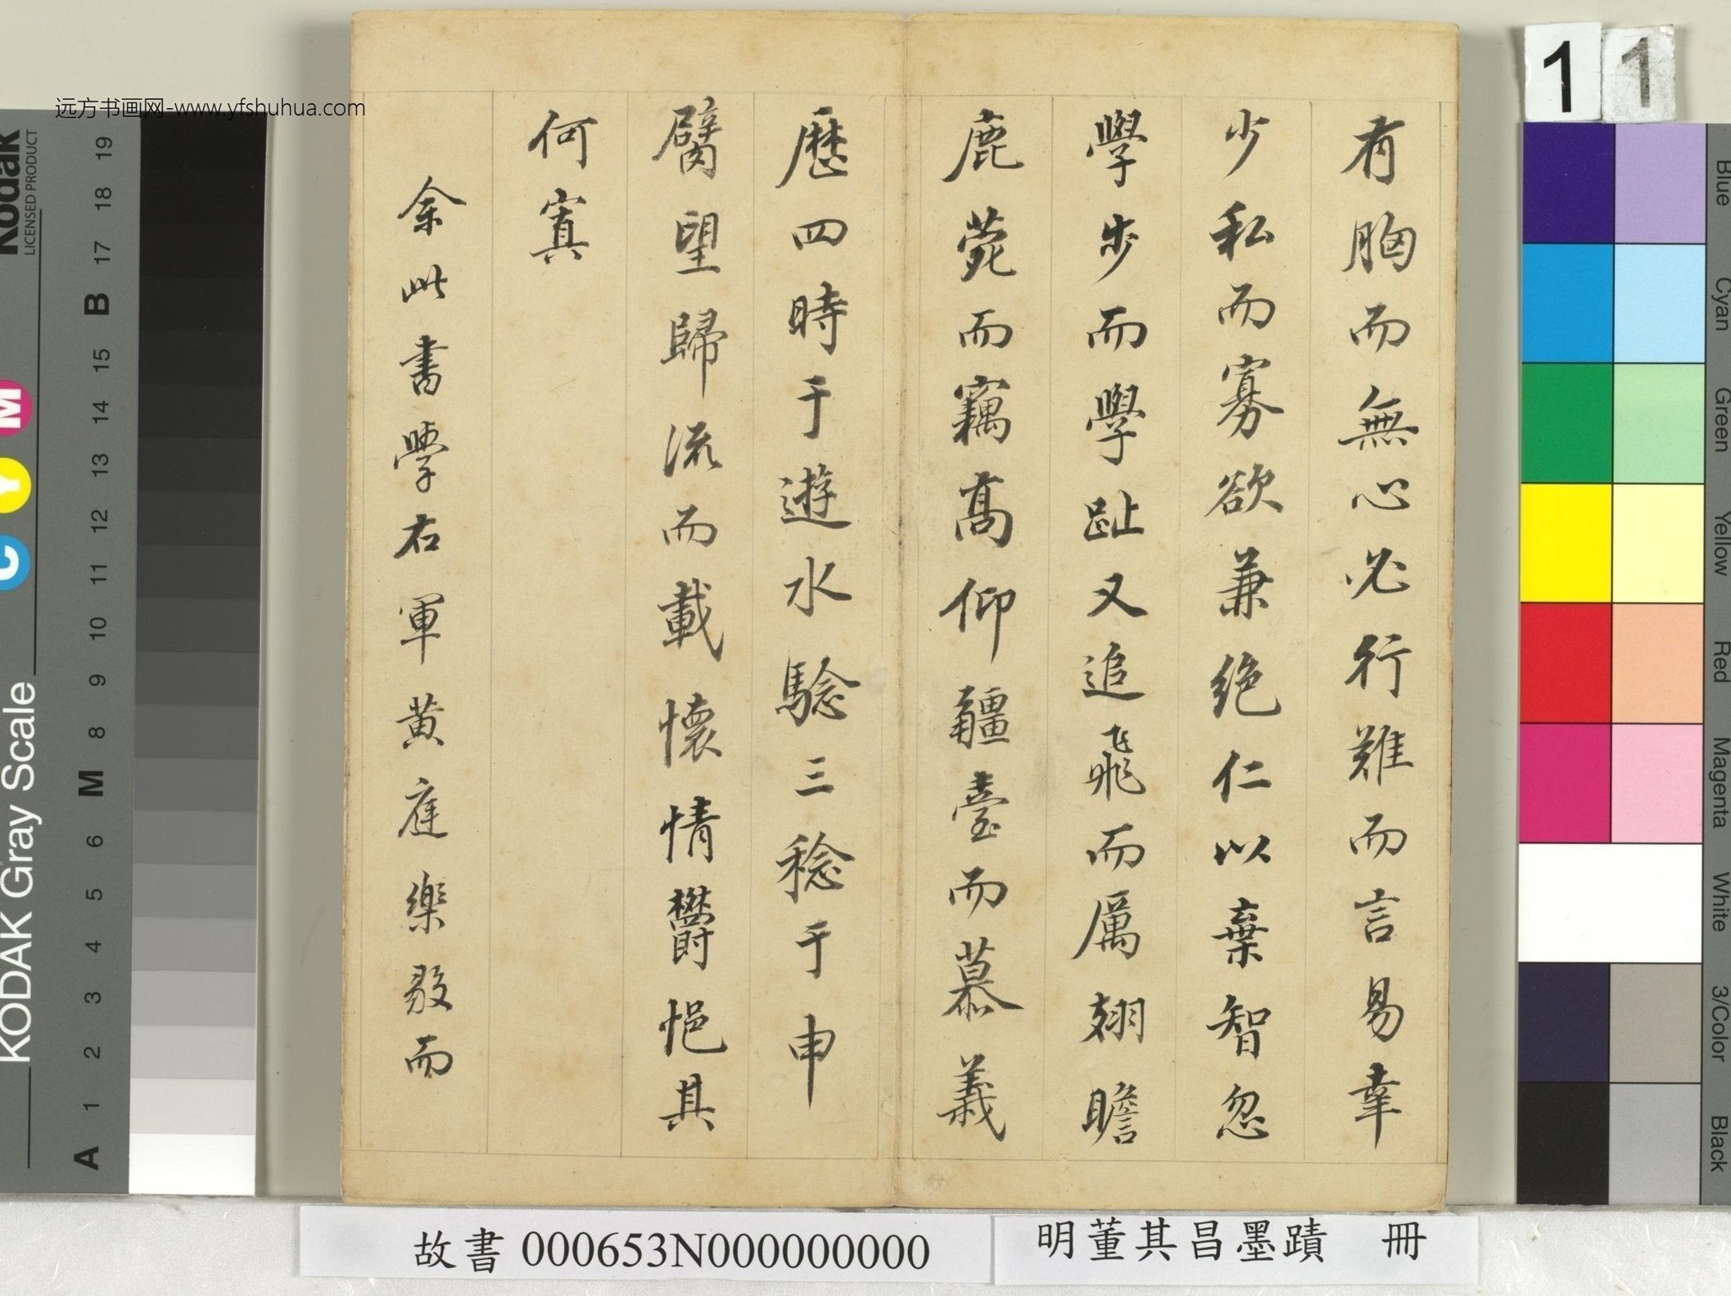 有胸而無心必行難而言易幸
少私而寡欲兼絕仁以棄智忽
學步而學趾又追飛而厲翅瞻
鹿菀而竊高仰疆臺而慕義
歷四時于遊水騐三稔于申
臂望歸流而載懷情欝悒其
何寘
余此書學右軍黃庭樂毅而
远方书画网-www.yfshuhua.com
故書 000653N000000000
明董其昌墨蹟 冊
1 1
Kodak
LICENSED PRODUCT
KODAK Gray Scale
C Y M
A 1 2 3 4 5 6 M 8 9 10 11 12 13 14 15 B 17 18 19
Blue
Cyan
Green
Yellow
Red
Magenta
White
3/Color
Black